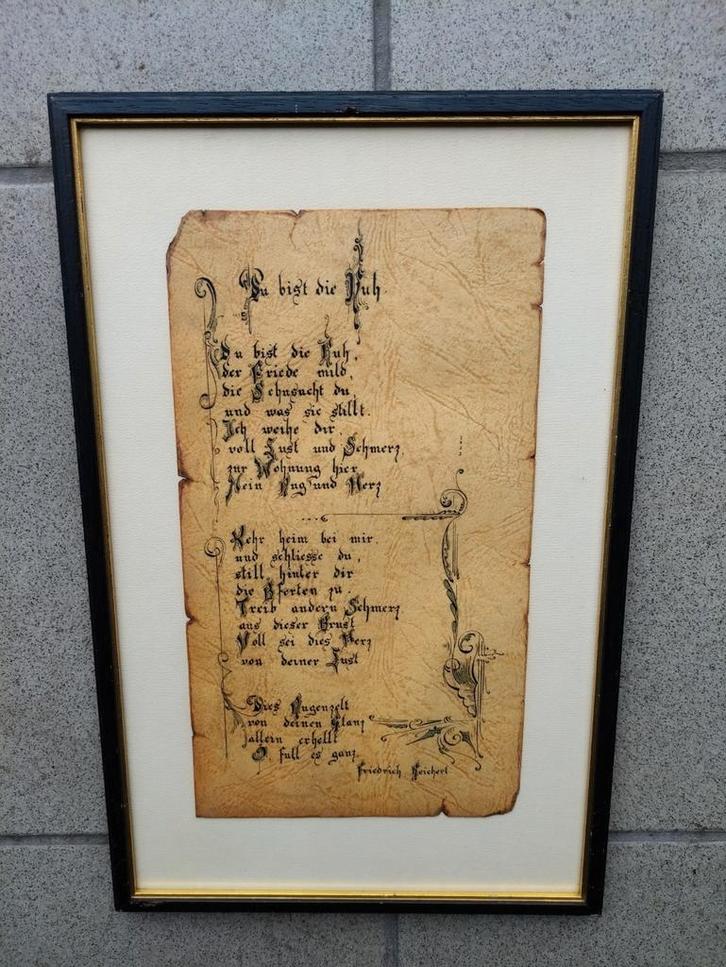 Du bist die Ruh
Du bist die Ruh,
der Friede mild,
die Sehnsucht du,
und was sie stillt.
Ich weihe dir
voll Lust und Schmerz,
zur Wohnung hier
Mein Aug und Herz
Kehr heim bei mir
und schliesse du,
still hinter dir
die Pforten zu.
Treib andern Schmerz
aus dieser Brust
Voll sei dies Herz
von deiner Lust
Dies Augenzelt
von deinen Glanz
allein erhellt
O, full es ganz
Friedrich